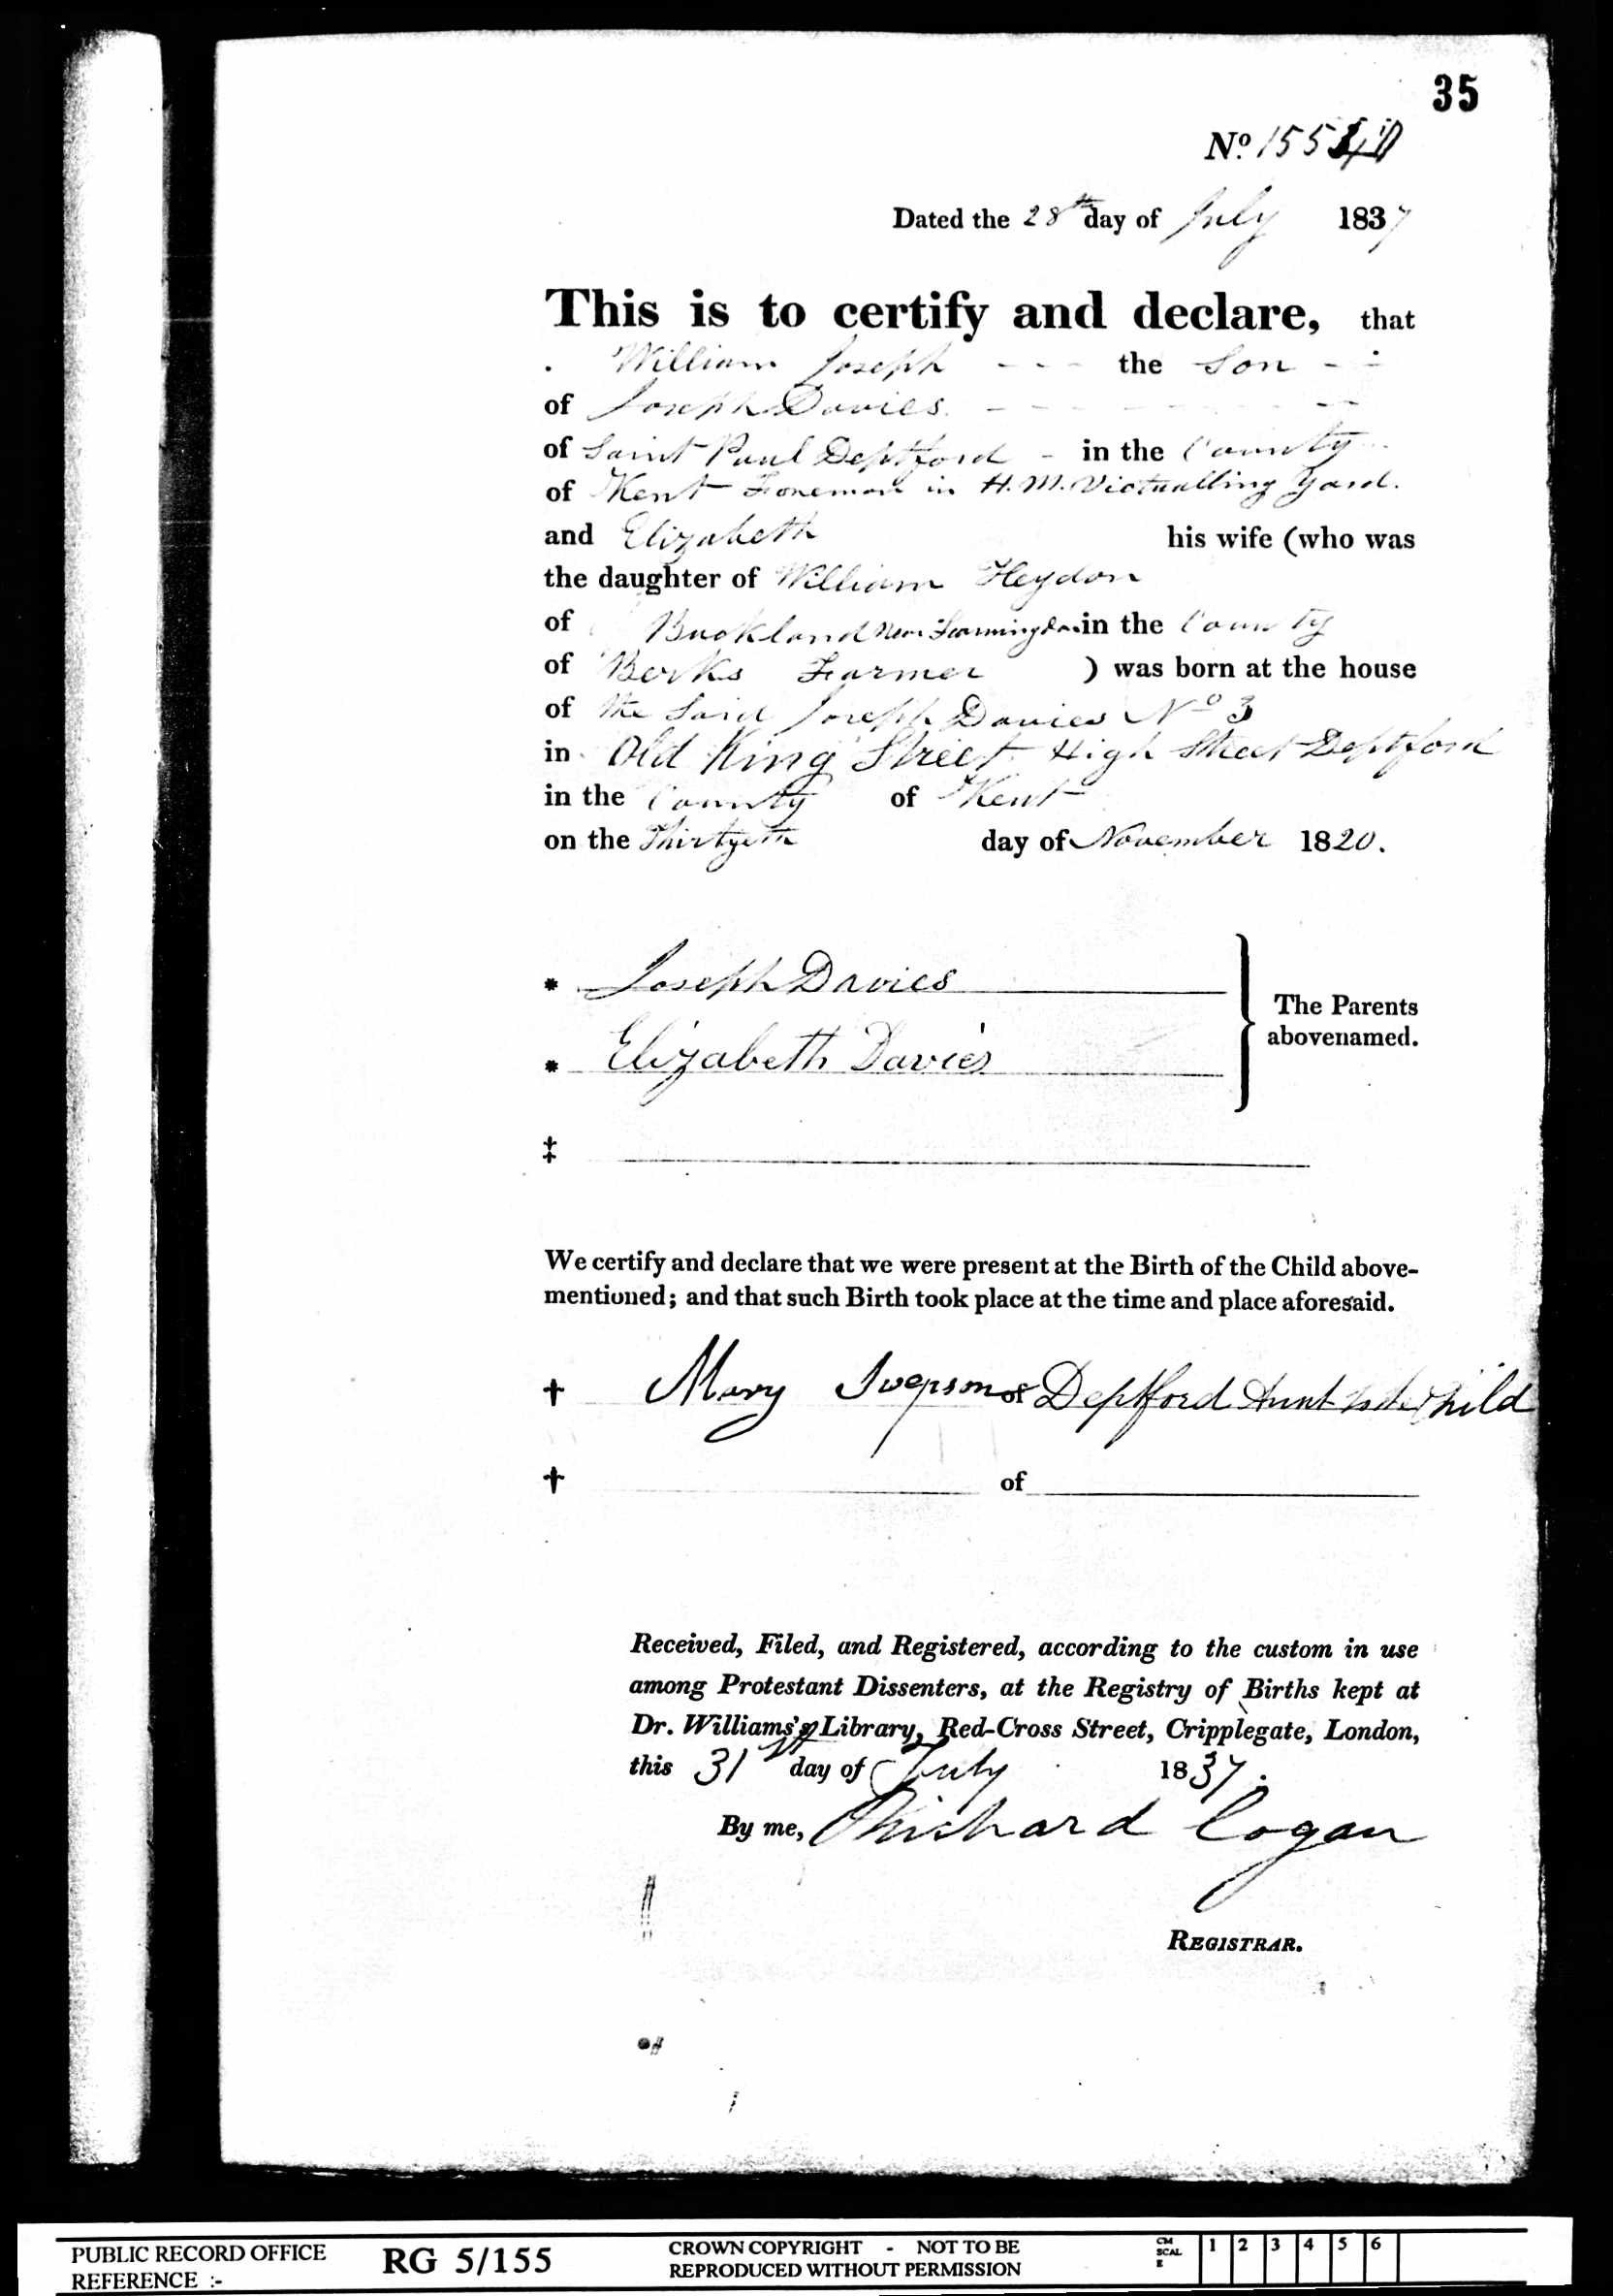 35
No. 155
Dated the 28th day of July 1837
This is to certify and declare, that
William Joseph - - - the Son - -
of Joseph Davies - - - - - -
of Saint Paul Deptford - in the County
of Kent Foreman in H.M. Victualling Yard.
and Elizabeth his wife (who was
the daughter of William Heydon
of Buckland Near in the County
of Berks Farmer ) was born at the house
of the Said Joseph Davies No 3
in Old King Street High Street Deptford
in the County of Kent
on the Thirtyeth day of November 1820.
* Joseph Davies
The Parents
abovenamed.
* Elizabeth Davies
‡
We certify and declare that we were present at the Birth of the Child above-
mentioned; and that such Birth took place at the time and place aforesaid.
† Mary of Deptford Aunt to the Child
† of
Received, Filed, and Registered, according to the custom in use
among Protestant Dissenters, at the Registry of Births kept at
Dr. Williams's Library, Red-Cross Street, Cripplegate, London,
this 31st day of July 1837.
By me, Richard Cogan
REGISTRAR.
PUBLIC RECORD OFFICE
REFERENCE :-
RG 5/155
CROWN COPYRIGHT - NOT TO BE
REPRODUCED WITHOUT PERMISSION
CM
SCAL
E
1 2 3 4 5 6